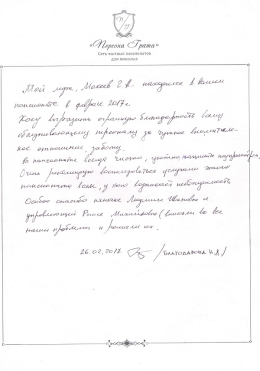 «Персона Грата»
Сеть частных пансионатов
для пожилых
Мой муж, Мокеев Г.В. находился в Вашем
пансионате в феврале 2017г.
Хочу выразить огромную благодарность всему
обслуживающему персоналу за чуткое вниматель-
ное отношение, заботу.
В пансионате всегда чисто, уютно
Очень рекомендую воспользоваться услугами этого
пансионата всем, у кого возникает необходимость.
Особое спасибо Людмиле Ивановне и
управляющей Михайловне (вникали во все
наши проблемы и решали их.
26.02.2017 /БЛАГОДАРОВА Н.Д/